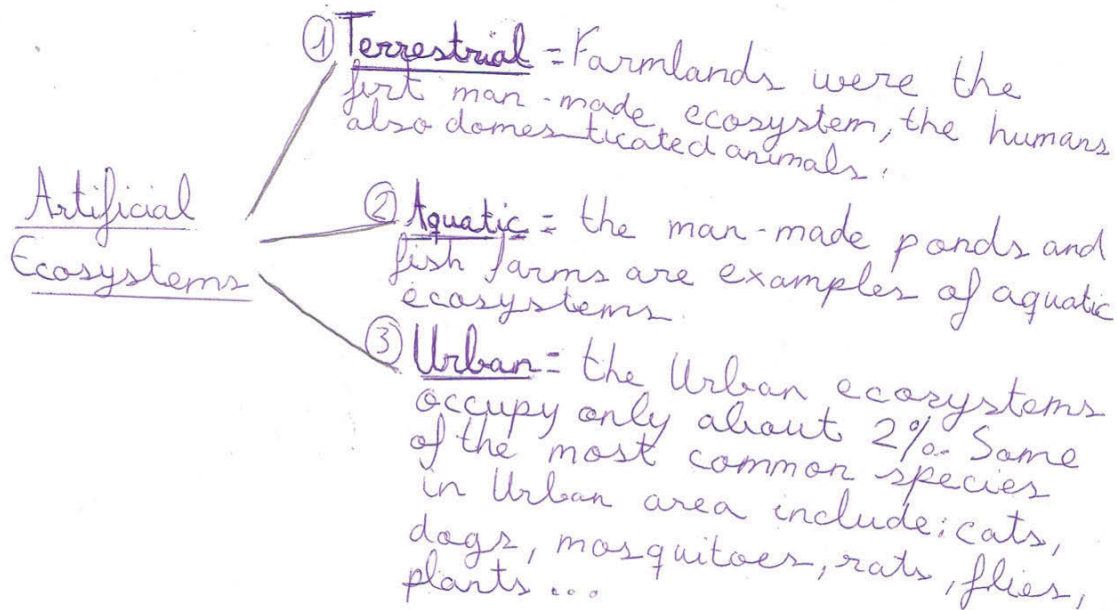 Artificial
Ecosystems
① Terrestrial = Farmlands were the
firt man-made ecosystem, the humans
also domesticated animals.
② Aquatic = the man-made ponds and
fish farms are examples of aquatic
ecosystems.
③ Urban = the Urban ecosystems
occupy only about 2%. Some
of the most common species
in Urban area include: cats,
dogs, mosquitoes, rats, flies,
plants ...